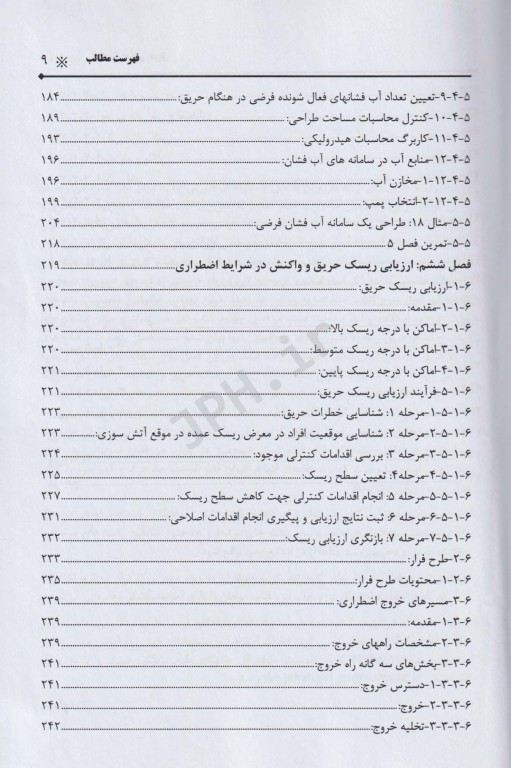 فهرست مطالب ※ ۹
۵-۴-۹-تعیین تعداد آب فشانهای فعال شونده فرضی در هنگام حریق: ۱۸۴
۵-۴-۱۰-کنترل محاسبات مساحت طراحی: ۱۸۹
۵-۴-۱۱-کاربرگ محاسبات هیدرولیکی: ۱۹۳
۵-۴-۱۲-منابع آب در سامانه های آب فشان: ۱۹۶
۵-۴-۱۲-۱-مخازن آب: ۱۹۶
۵-۴-۱۲-۲-انتخاب پمپ: ۱۹۹
۵-۵-مثال ۱۸: طراحی یک سامانه آب فشان فرضی: ۲۰۴
۵-۵-تمرین فصل ۵ ۲۱۸
فصل ششم: ارزیابی ریسک حریق و واکنش در شرایط اضطراری ۲۱۹
۶-۱-ارزیابی ریسک حریق: ۲۲۰
۶-۱-۱-مقدمه: ۲۲۰
۶-۱-۲-اماکن با درجه ریسک بالا: ۲۲۰
۶-۱-۳-اماکن با درجه ریسک متوسط: ۲۲۰
۶-۱-۴-اماکن با درجه ریسک پایین: ۲۲۱
۶-۱-۵-فرآیند ارزیابی ریسک حریق: ۲۲۱
۶-۱-۵-۱-مرحله ۱: شناسایی خطرات حریق: ۲۲۳
۶-۱-۵-۲-مرحله ۲: شناسایی موقعیت افراد در معرض ریسک عمده در موقع آتش سوزی: ۲۲۳
۶-۱-۵-۳-مرحله ۳: بررسی اقدامات کنترلی موجود: ۲۲۴
۶-۱-۵-۴-مرحله۴: تعیین سطح ریسک: ۲۲۵
۶-۱-۵-۵-مرحله ۵: انجام اقدامات کنترلی جهت کاهش سطح ریسک: ۲۲۷
۶-۱-۵-۶-مرحله ۶: ثبت نتایج ارزیابی و پیگیری انجام اقدامات اصلاحی: ۲۳۱
۶-۱-۵-۷-مرحله ۷: بازنگری ارزیابی ریسک: ۲۳۲
۶-۲-طرح فرار: ۲۳۳
۶-۲-۱-محتویات طرح فرار: ۲۳۵
۶-۳-مسیرهای خروج اضطراری: ۲۳۹
۶-۳-۱-مقدمه: ۲۳۹
۶-۳-۲-مشخصات راههای خروج: ۲۳۹
۶-۳-۳-بخش‌های سه گانه راه خروج: ۲۴۱
۶-۳-۳-۱-دسترس خروج: ۲۴۱
۶-۳-۳-۲-خروج: ۲۴۱
۶-۳-۳-۳-تخلیه خروج: ۲۴۲
JPH.ir